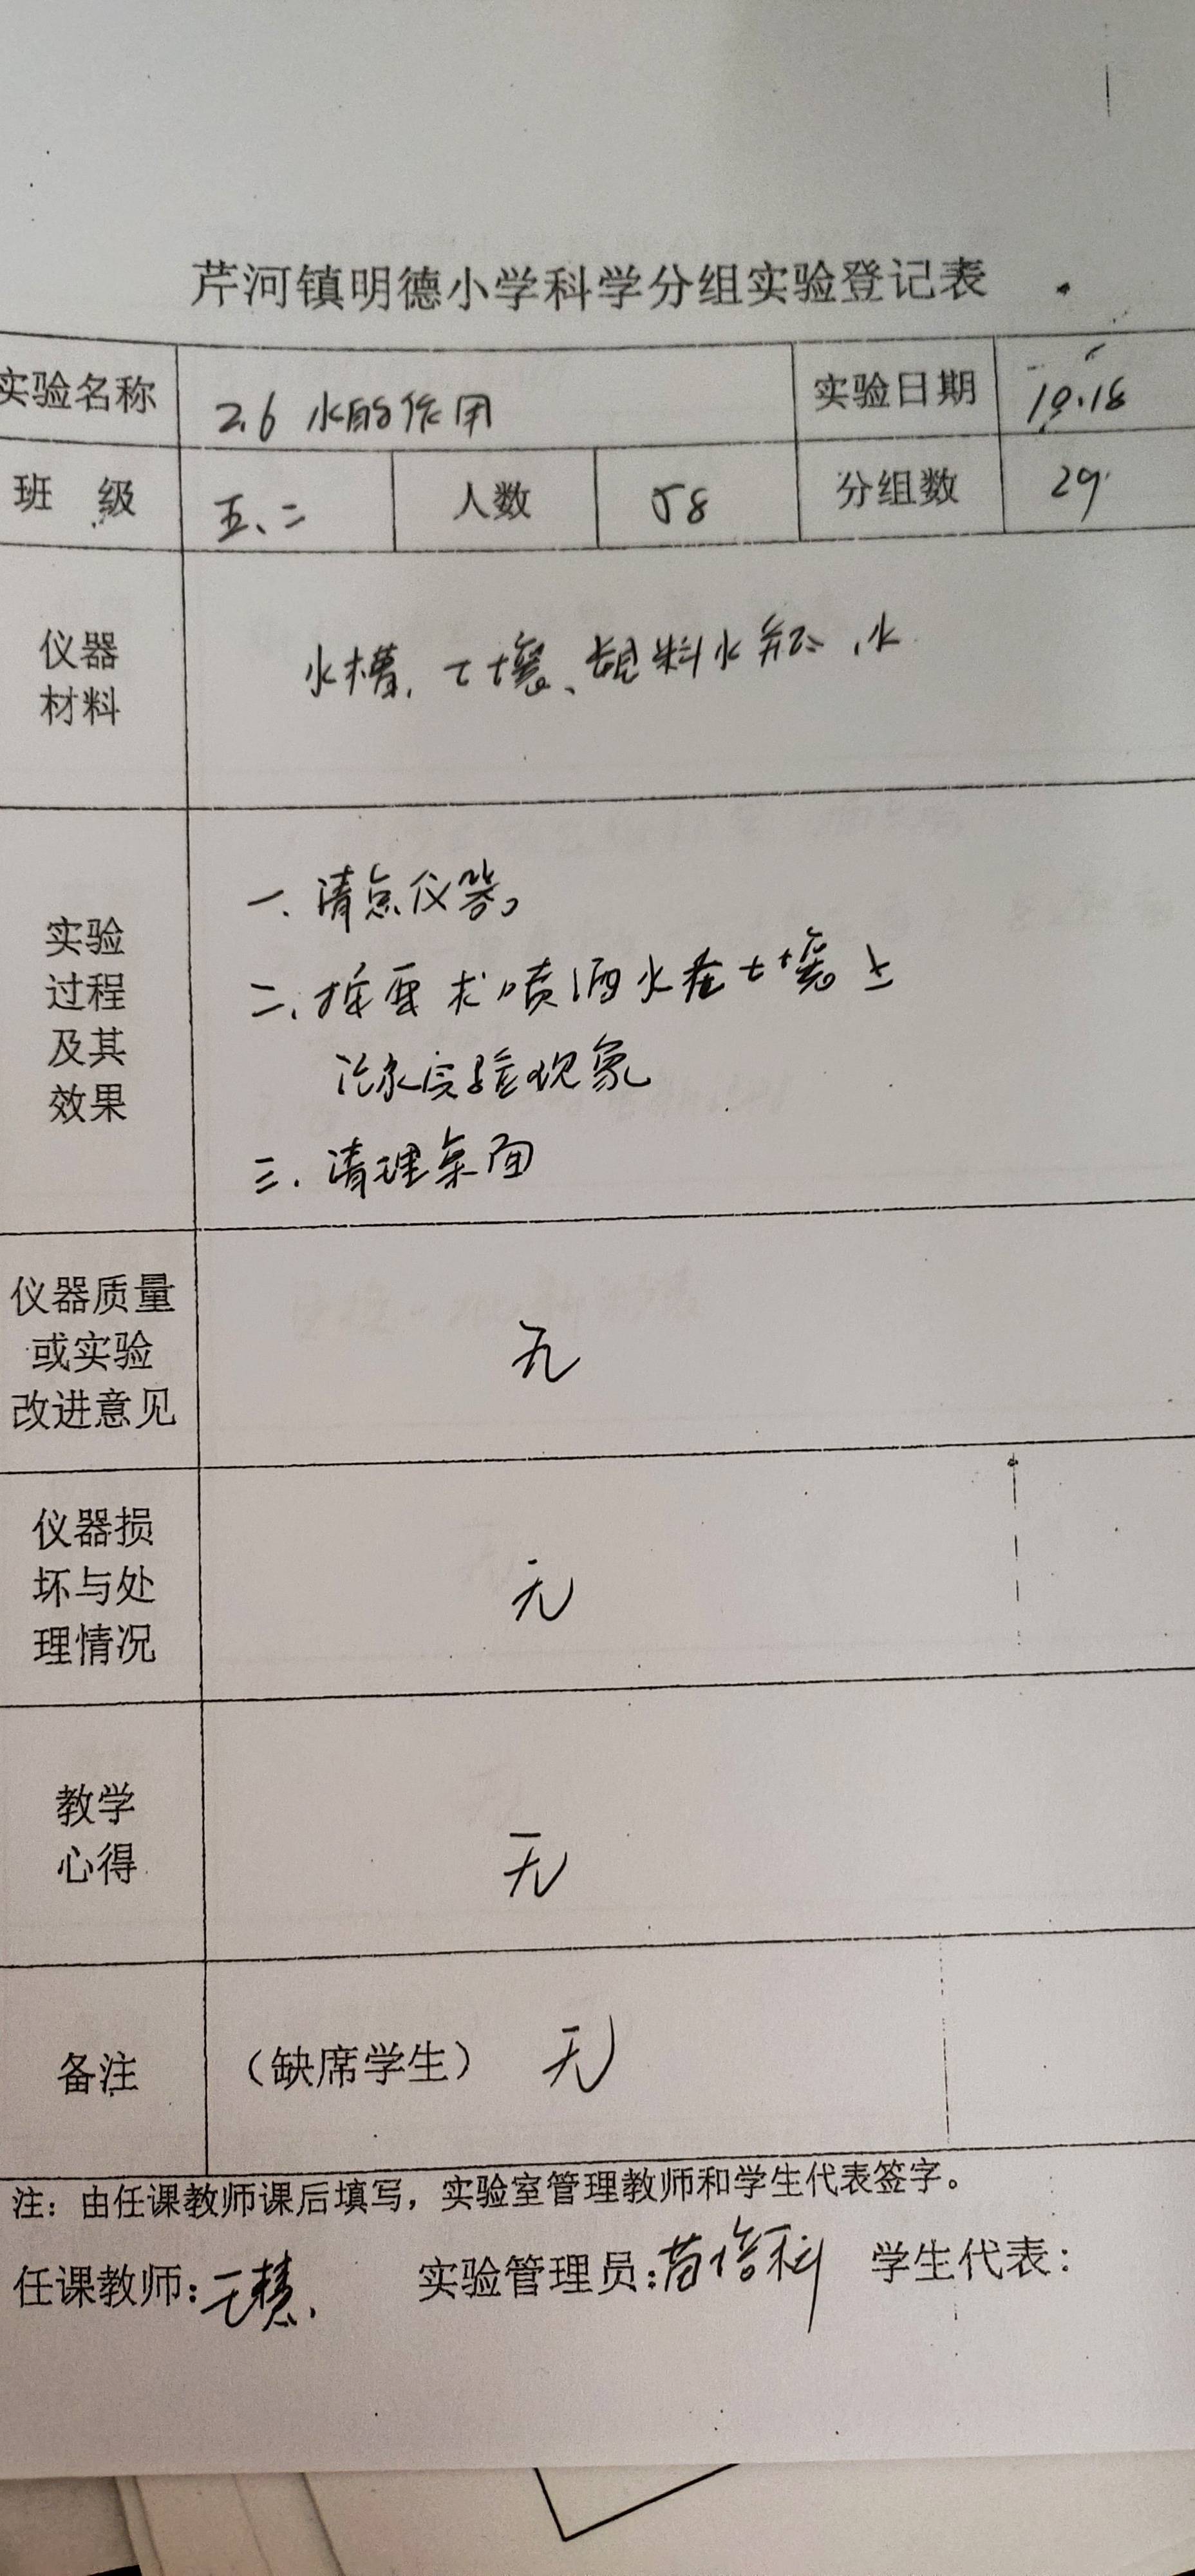 芹河镇明德小学科学分组实验登记表
实验名称 2.6 水的作用 实验日期 10.18
班 级 五、二 人数 58 分组数 29
仪器
材料
水槽、土壤、塑料水瓶、水
实验
过程
及其
效果
一、清点仪器。
二、按要求喷洒水在土壤上
记录实验现象
三、清理桌面
仪器质量
或实验
改进意见
无
仪器损
坏与处
理情况
无
教学
心得
无
备注 （缺席学生） 无
注：由任课教师课后填写，实验室管理教师和学生代表签字。
任课教师： 实验管理员： 学生代表：